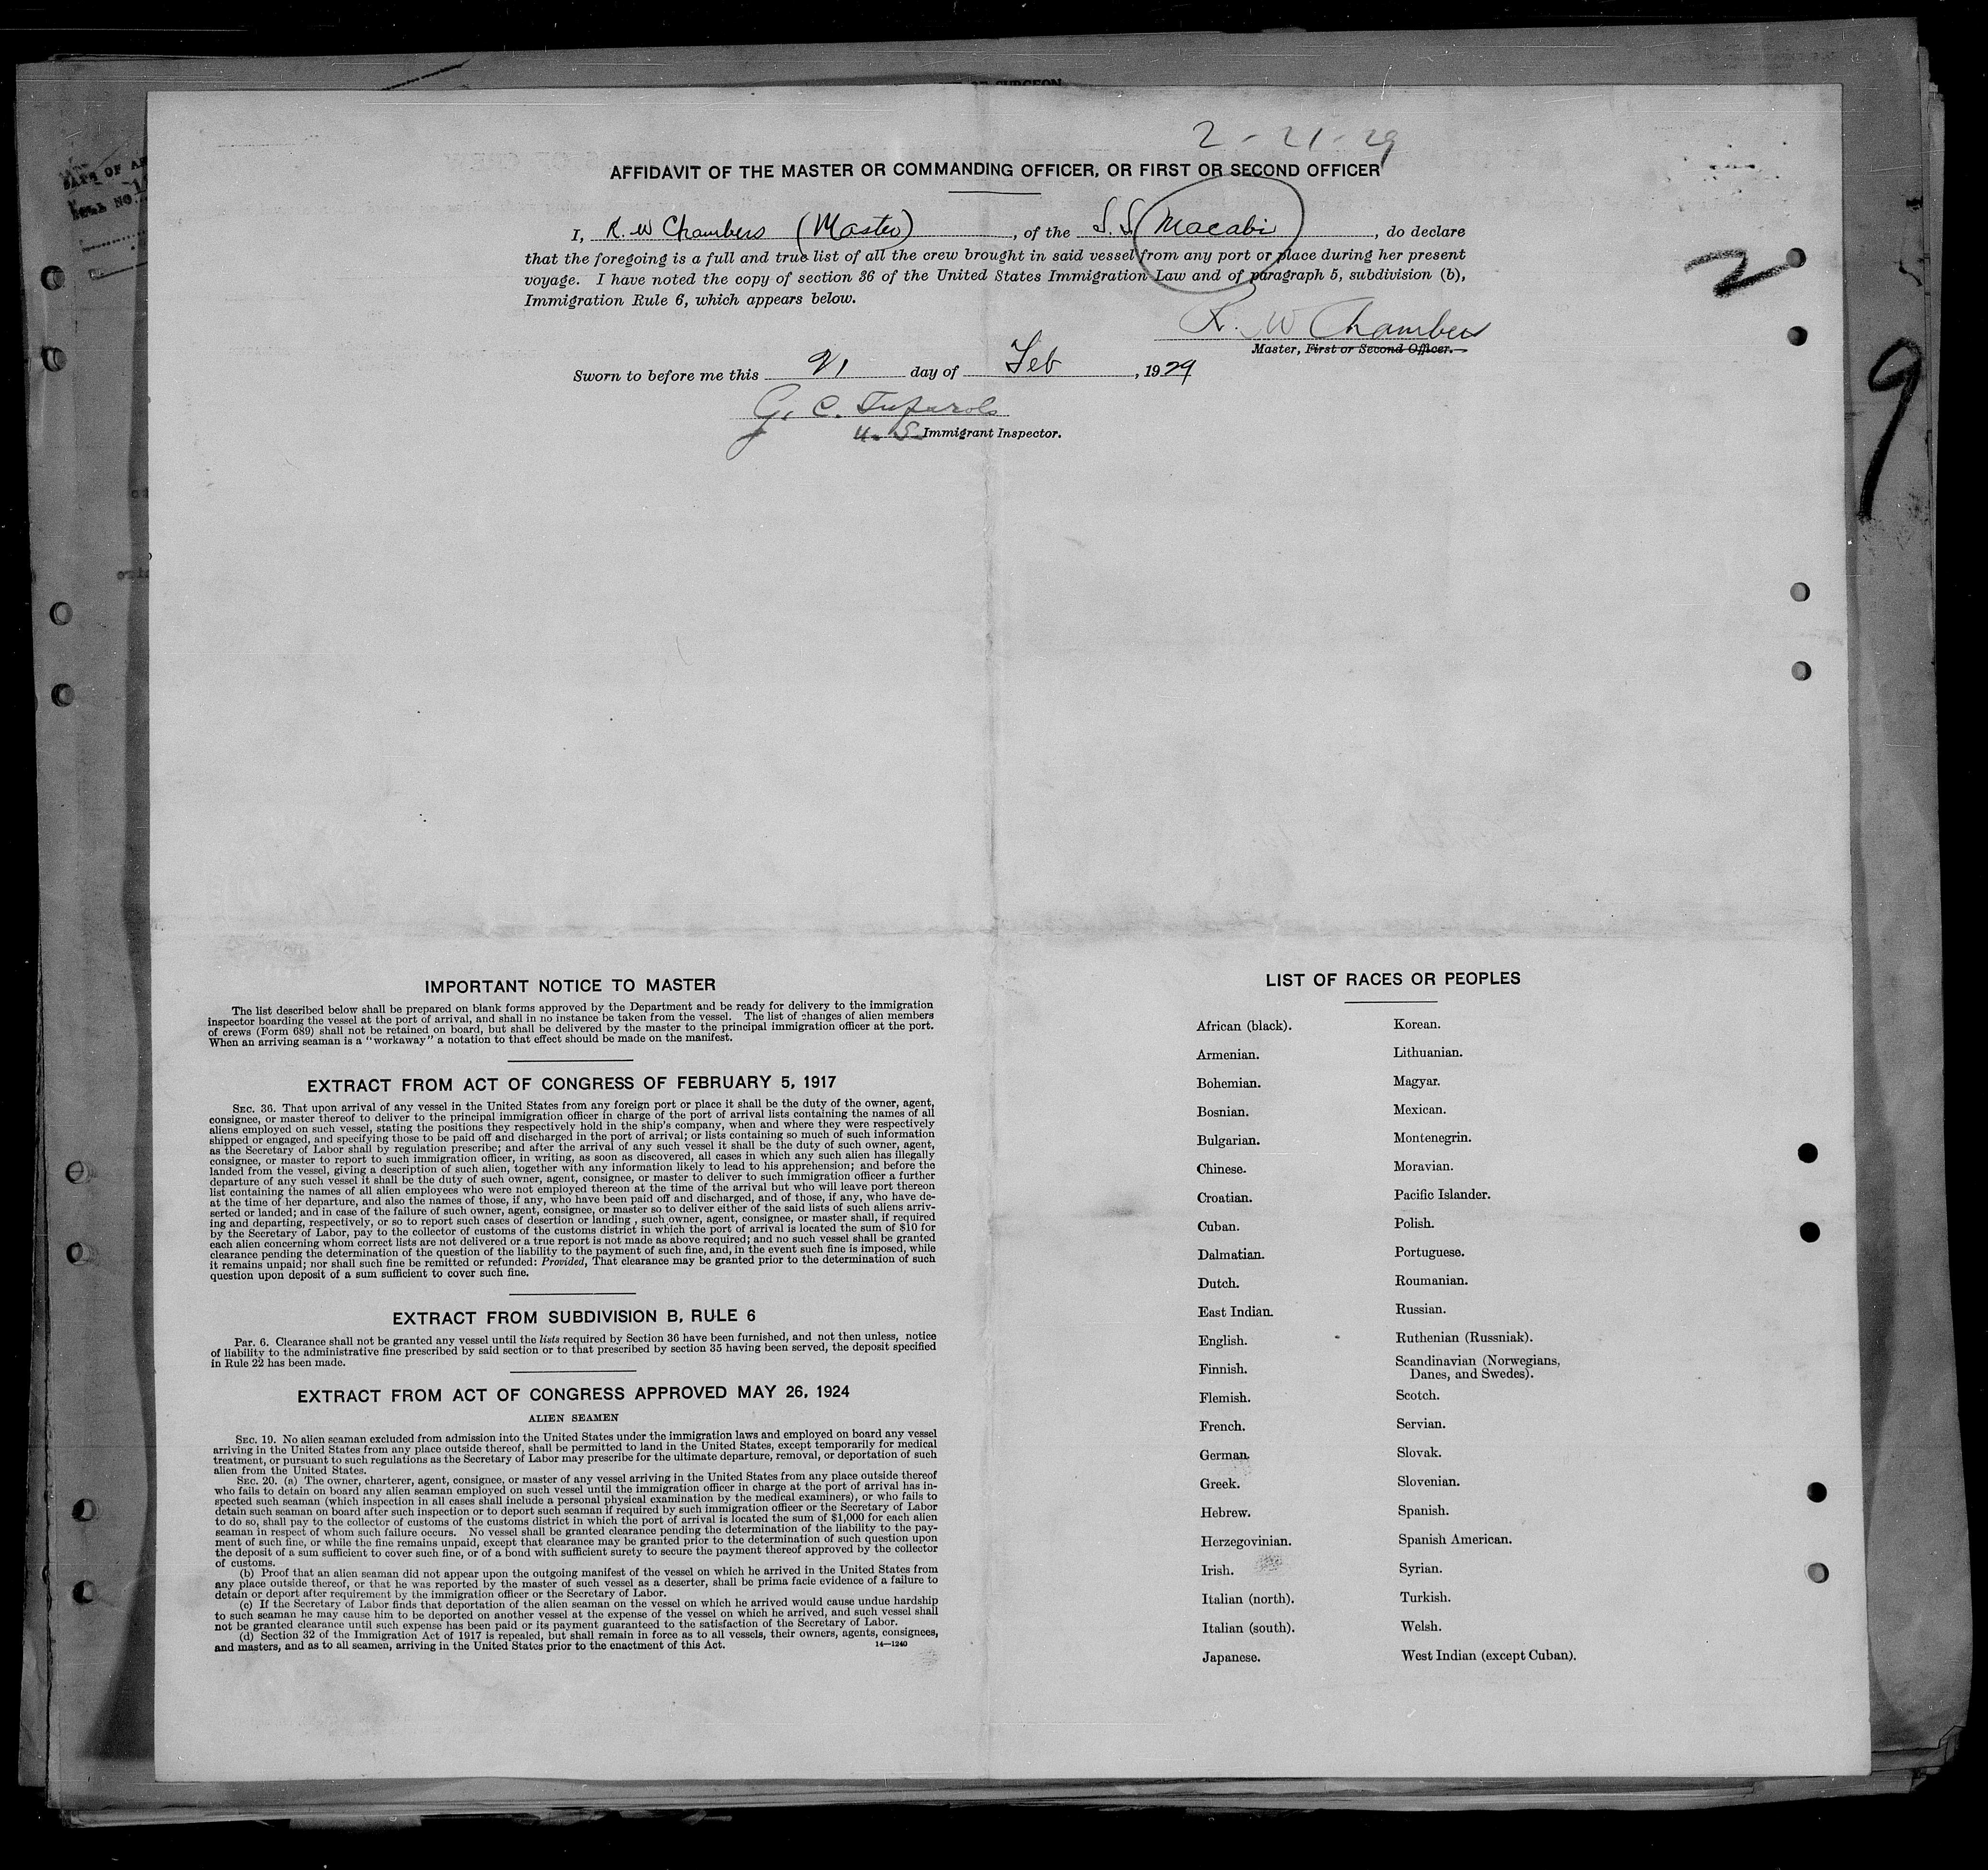 2-21-29
AFFIDAVIT OF THE MASTER OR COMMANDING OFFICER, OR FIRST OR SECOND OFFICER
I, R. W Chambers (Master), of the S.S. Macabi, do declare
that the foregoing is a full and true list of all the crew brought in said vessel from any port or place during her present
voyage. I have noted the copy of section 36 of the United States Immigration Law and of paragraph 5, subdivision (b),
Immigration Rule 6, which appears below.
R. W Chambers
Master, First or Second Officer.
Sworn to before me this 21 day of Feb, 1929
G. C.
U. S. Immigrant Inspector.
2
9
IMPORTANT NOTICE TO MASTER
The list described below shall be prepared on blank forms approved by the Department and be ready for delivery to the immigration
inspector boarding the vessel at the port of arrival, and shall in no instance be taken from the vessel. The list of changes of alien members
of crews (Form 689) shall not be retained on board, but shall be delivered by the master to the principal immigration officer at the port.
When an arriving seaman is a "workaway" a notation to that effect should be made on the manifest.
EXTRACT FROM ACT OF CONGRESS OF FEBRUARY 5, 1917
SEC. 36. That upon arrival of any vessel in the United States from any foreign port or place it shall be the duty of the owner, agent,
consignee, or master thereof to deliver to the principal immigration officer in charge of the port of arrival lists containing the names of all
aliens employed on such vessel, stating the positions they respectively hold in the ship's company, when and where they were respectively
shipped or engaged, and specifying those to be paid off and discharged in the port of arrival; or lists containing so much of such information
as the Secretary of Labor shall by regulation prescribe; and after the arrival of any such vessel it shall be the duty of such owner, agent,
consignee, or master to report to such immigration officer, in writing, as soon as discovered, all cases in which any such alien has illegally
landed from the vessel, giving a description of such alien, together with any information likely to lead to his apprehension; and before the
departure of any such vessel it shall be the duty of such owner, agent, consignee, or master to deliver to such immigration officer a further
list containing the names of all alien employees who were not employed thereon at the time of the arrival but who will leave port thereon
at the time of her departure, and also the names of those, if any, who have been paid off and discharged, and of those, if any, who have de-
serted or landed; and in case of the failure of such owner, agent, consignee, or master so to deliver either of the said lists of such aliens arriv-
ing and departing, respectively, or so to report such cases of desertion or landing , such owner, agent, consignee, or master shall, if required
by the Secretary of Labor, pay to the collector of customs of the customs district in which the port of arrival is located the sum of $10 for
each alien concerning whom correct lists are not delivered or a true report is not made as above required; and no such vessel shall be granted
clearance pending the determination of the question of the liability to the payment of such fine, and, in the event such fine is imposed, while
it remains unpaid; nor shall such fine be remitted or refunded: Provided, That clearance may be granted prior to the determination of such
question upon deposit of a sum sufficient to cover such fine.
EXTRACT FROM SUBDIVISION B, RULE 6
Par. 6. Clearance shall not be granted any vessel until the lists required by Section 36 have been furnished, and not then unless, notice
of liability to the administrative fine prescribed by said section or to that prescribed by section 35 having been served, the deposit specified
in Rule 22 has been made.
EXTRACT FROM ACT OF CONGRESS APPROVED MAY 26, 1924
ALIEN SEAMEN
SEC. 19. No alien seaman excluded from admission into the United States under the immigration laws and employed on board any vessel
arriving in the United States from any place outside thereof, shall be permitted to land in the United States, except temporarily for medical
treatment, or pursuant to such regulations as the Secretary of Labor may prescribe for the ultimate departure, removal, or deportation of such
alien from the United States.
SEC. 20. (a) The owner, charterer, agent, consignee, or master of any vessel arriving in the United States from any place outside thereof
who fails to detain on board any alien seaman employed on such vessel until the immigration officer in charge at the port of arrival has in-
spected such seaman (which inspection in all cases shall include a personal physical examination by the medical examiners), or who fails to
detain such seaman on board after such inspection or to deport such seaman if required by such immigration officer or the Secretary of Labor
to do so, shall pay to the collector of customs of the customs district in which the port of arrival is located the sum of $1,000 for each alien
seaman in respect of whom such failure occurs. No vessel shall be granted clearance pending the determination of the liability to the pay-
ment of such fine, or while the fine remains unpaid, except that clearance may be granted prior to the determination of such question upon
the deposit of a sum sufficient to cover such fine, or of a bond with sufficient surety to secure the payment thereof approved by the collector
of customs.
(b) Proof that an alien seaman did not appear upon the outgoing manifest of the vessel on which he arrived in the United States from
any place outside thereof, or that he was reported by the master of such vessel as a deserter, shall be prima facie evidence of a failure to
detain or deport after requirement by the immigration officer or the Secretary of Labor.
(c) If the Secretary of Labor finds that deportation of the alien seaman on the vessel on which he arrived would cause undue hardship
to such seaman he may cause him to be deported on another vessel at the expense of the vessel on which he arrived, and such vessel shall
not be granted clearance until such expense has been paid or its payment guaranteed to the satisfaction of the Secretary of Labor.
(d) Section 32 of the Immigration Act of 1917 is repealed, but shall remain in force as to all vessels, their owners, agents, consignees,
and masters, and as to all seamen, arriving in the United States prior to the enactment of this Act.
14—1240
LIST OF RACES OR PEOPLES
African (black).
Armenian.
Bohemian.
Bosnian.
Bulgarian.
Chinese.
Croatian.
Cuban.
Dalmatian.
Dutch.
East Indian.
English.
Finnish.
Flemish.
French.
German.
Greek.
Hebrew.
Herzegovinian.
Irish.
Italian (north).
Italian (south).
Japanese.
Korean.
Lithuanian.
Magyar.
Mexican.
Montenegrin.
Moravian.
Pacific Islander.
Polish.
Portuguese.
Roumanian.
Russian.
Ruthenian (Russniak).
Scandinavian (Norwegians,
Danes, and Swedes).
Scotch.
Servian.
Slovak.
Slovenian.
Spanish.
Spanish American.
Syrian.
Turkish.
Welsh.
West Indian (except Cuban).